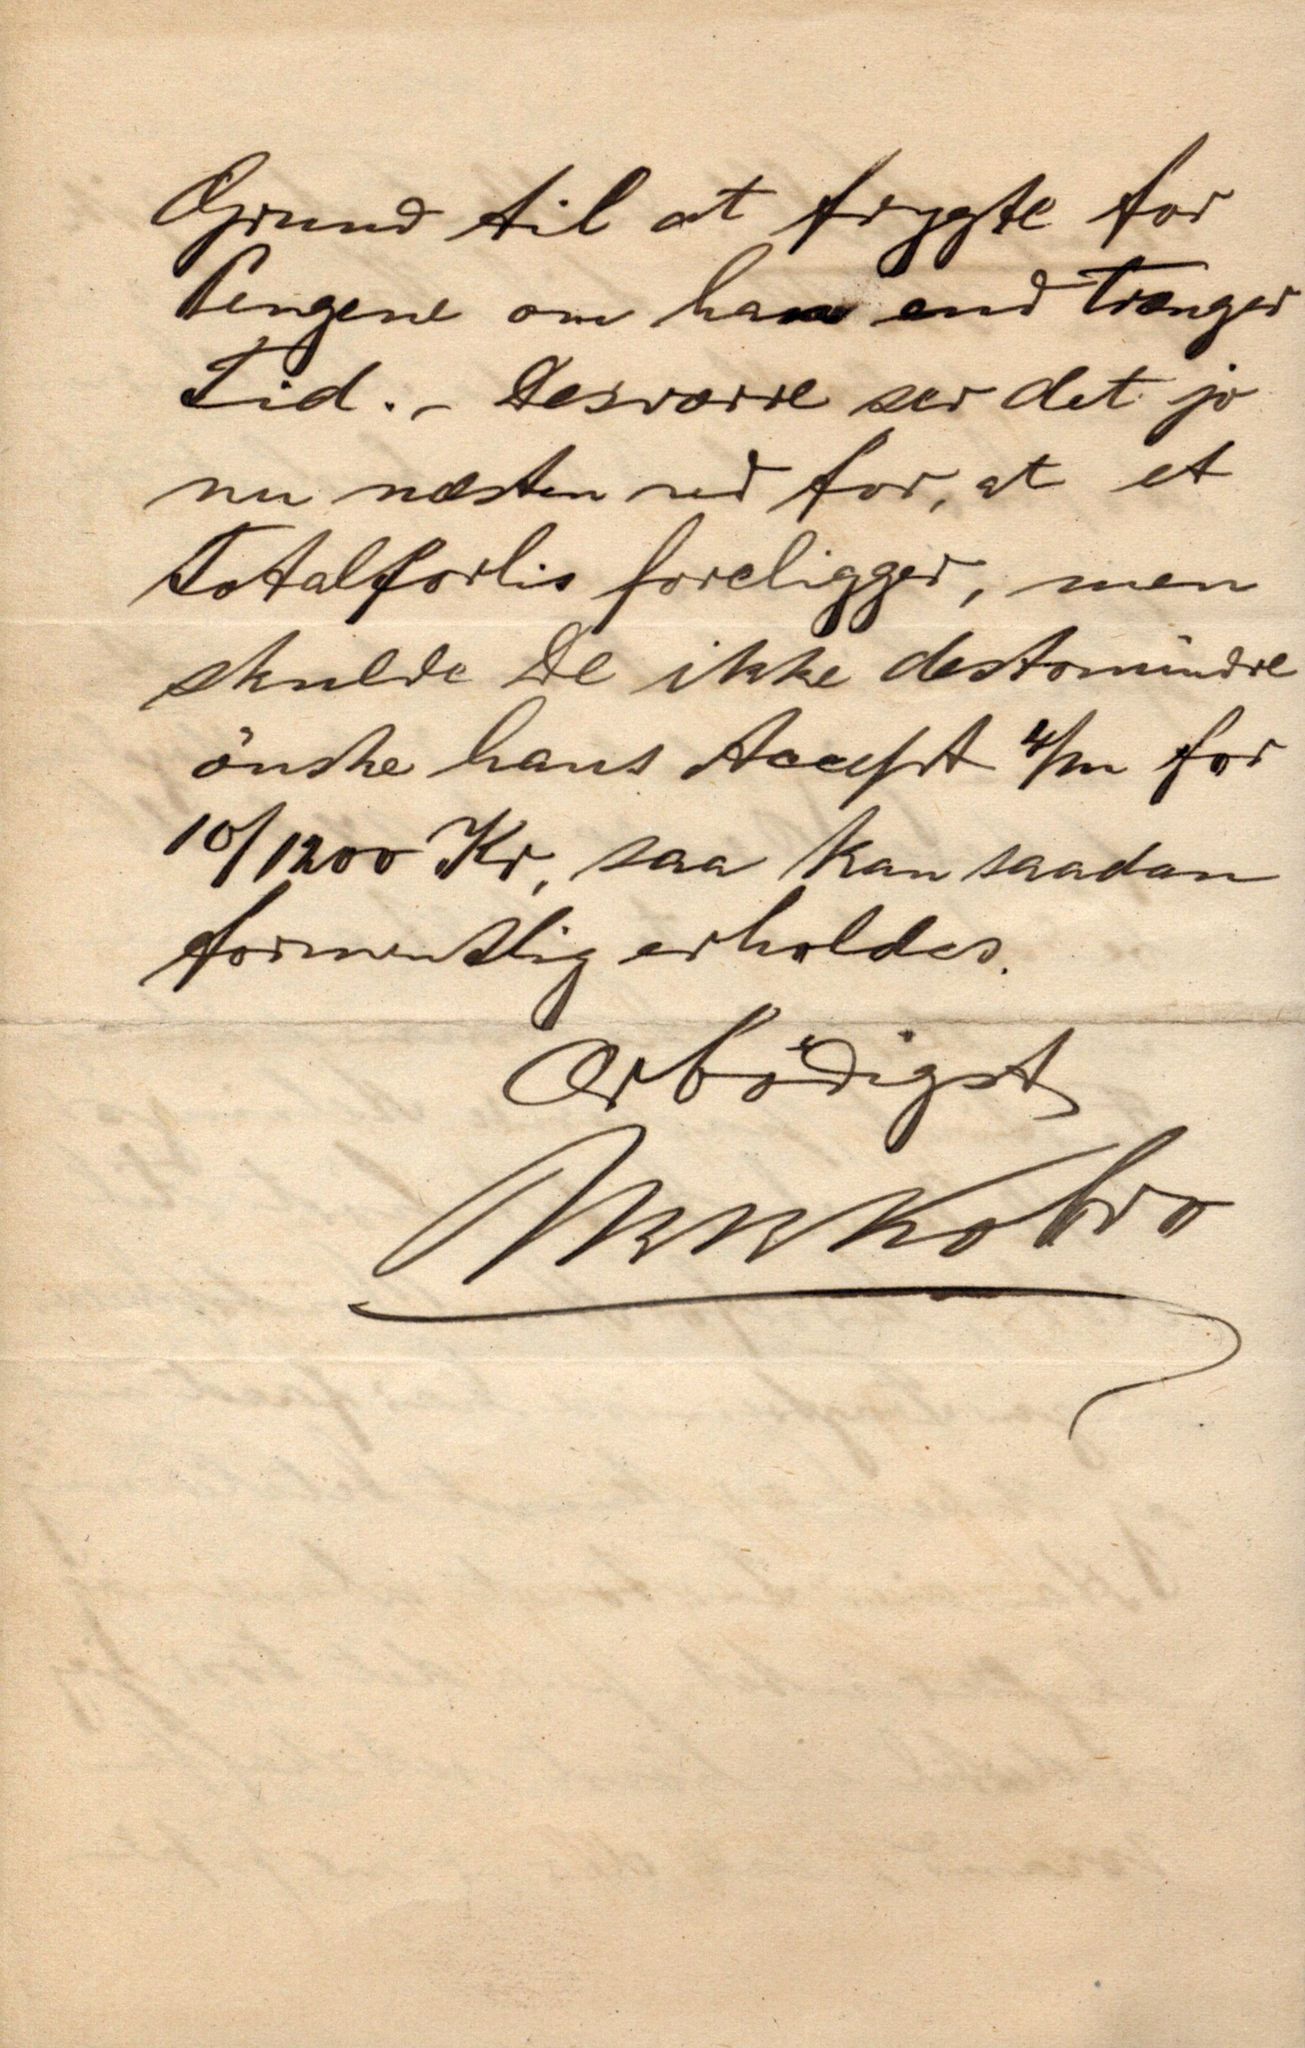 Grund til at frygte for
Pengene om han end trænger
Tid. - Desværre ser det jo
nu næsten ud for, at et
Totalforlis foreligger, men
skulde De ikke destomindre
önske hans Accept 4/m for
10/1200 Kr, saa kan saadan
formentlig erholdes.
Ærbödigst